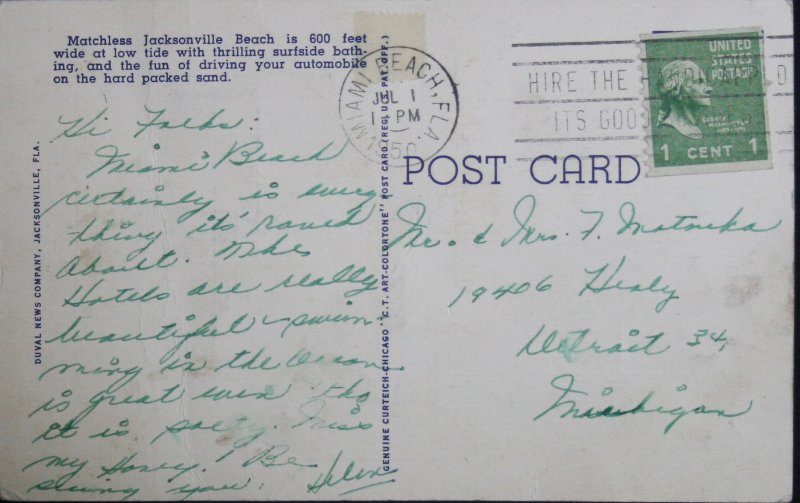 Matchless Jacksonville Beach is 600 feet
wide at low tide with thrilling surfside bath-
ing, and the fun of driving your automobile
on the hard packed sand.
Hi Folks:
Miami Beach
certainly is every
thing it's raved
about. The
Hotels are really
beautiful - swim-
ming in the Ocean
is great even tho
it is salty. Miss
my Honey! Be
seeing you. Helen
DUVAL NEWS COMPANY, JACKSONVILLE, FLA.
GENUINE CURTEICH-CHICAGO "C.T. ART-COLORTONE" POST CARD (REG. U.S. PAT. OFF.)
MIAMI BEACH, FLA.
JUL 1
1 PM
50
HIRE THE
ITS GOO
UNITED
STATES
POSTAGE
GEORGE
WASHINGTON
1789-1797
1 CENT 1
POST CARD
Mr. & Mrs. F. Matuska
19406 Healy
Detroit 34,
Michigan